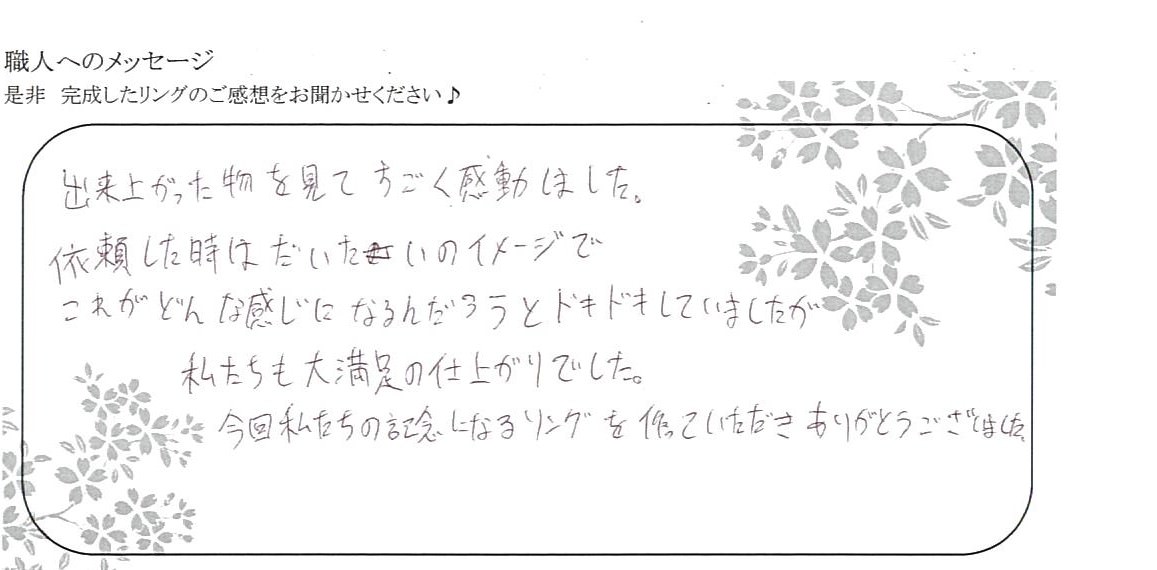 職人へのメッセージ
是非 完成したリングのご感想をお聞かせください♪
出来上がった物を見てすごく感動しました。
依頼した時はだいたいのイメージで
これがどんな感じになるんだろうとドキドキしていましたが
私たちも大満足の仕上がりでした。
今回私たちの記念になるリングを作っていただきありがとうございました。